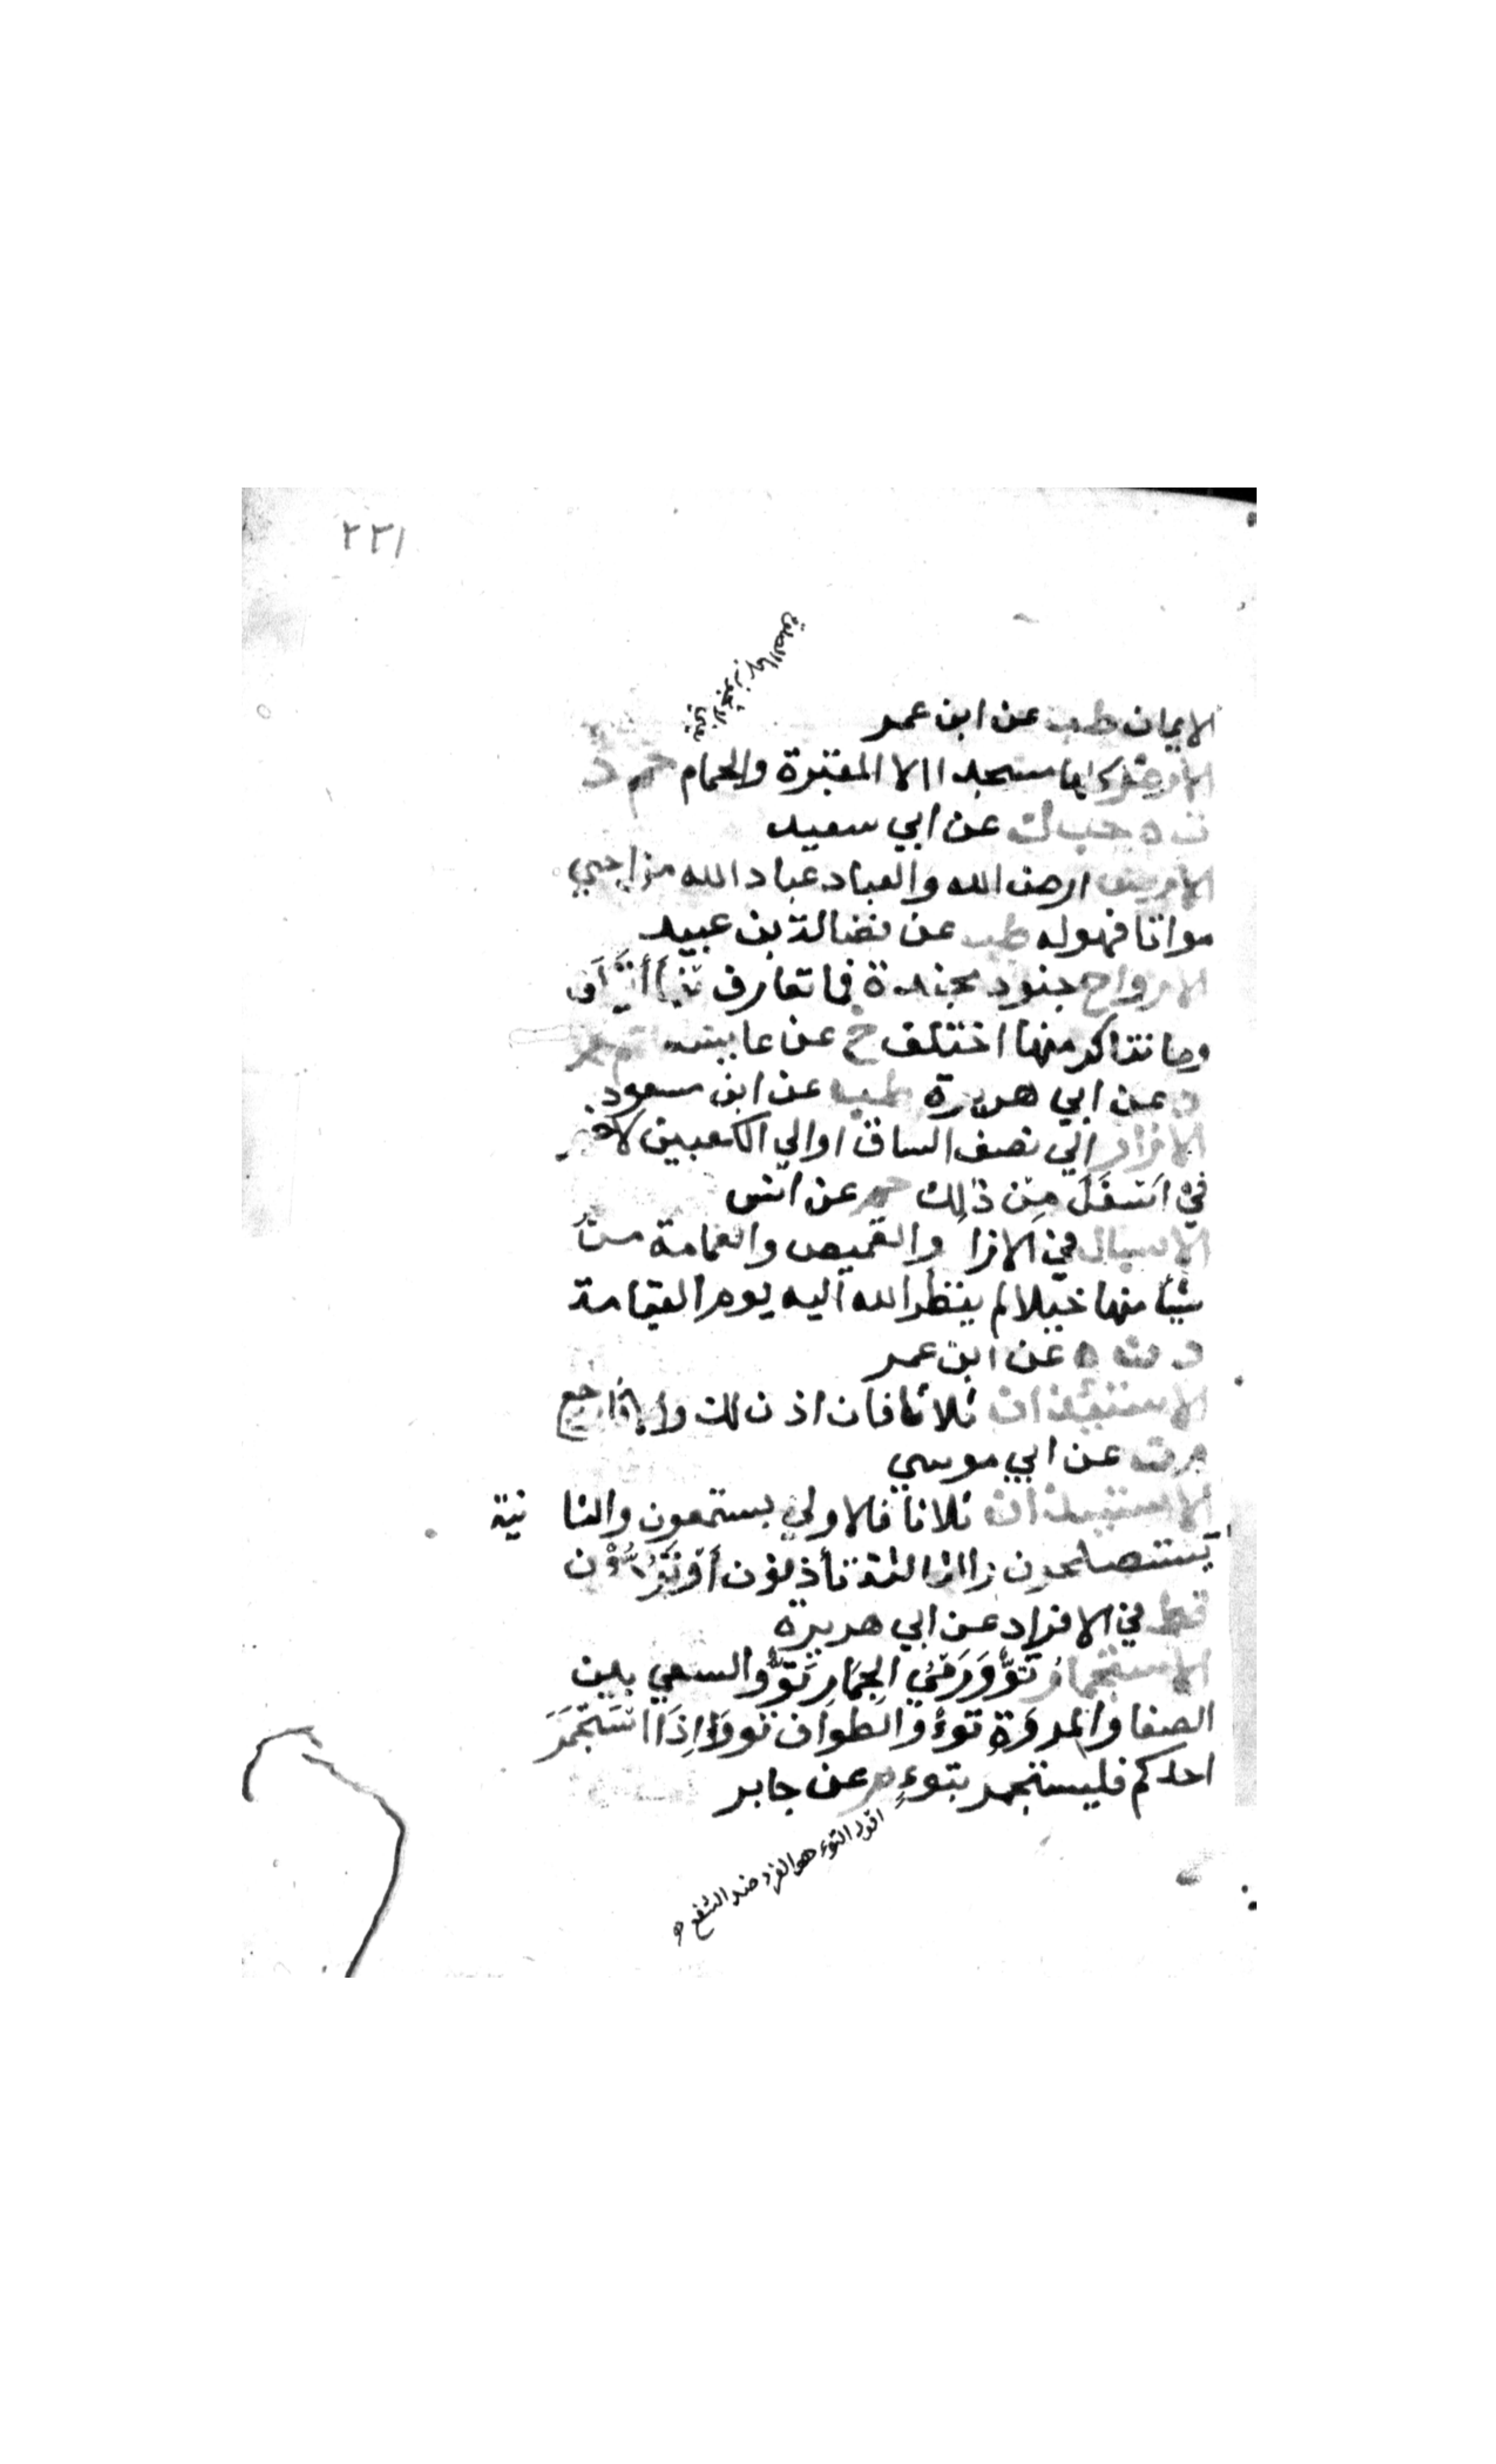 ٢٢١
الايمان طب عن ابن عمر
الارض كلها مسجد االا المقبرة والحمام حم د
ت ه حب ك عن ابي سعيد
الارض ارض الله والعباد عباد الله من احيي
مواتا فهوله طب عن فضالة بن عبيد
الارواح جنود مجندة فما تعارف
وما تناكر منها اختلف خ عن عايشه حم م
د عن ابي هريرة طب عن ابن مسعود
الازار الي نصف الساق اوالي الكعبين لاخير
في اسفل من ذلك حم عن انس
الاسبال في الازا والقميص والعمامة من
شيأ منها خيلا لم ينظر الله اليه يوم القيامة
د ن ه عن ابن عمر
الاستئذان ثلاثا فان اذن لك والا فارجع
م ت عن ابي موسي
الاستيذان ثلاثا فالاولي يستمعون والثا نية
يستصلحون والثالثة تأذنون أو تردون
قط في الافراد عن ابي هريرة
الاستجمار تو ورمي الجمار تو والسعي بين
الصفا والمروة توء والطواف توواذا استجمر
احدكم فليستجمر بتوء م عن جابر
اقول التوء هو الفرد ضد الشفع ه